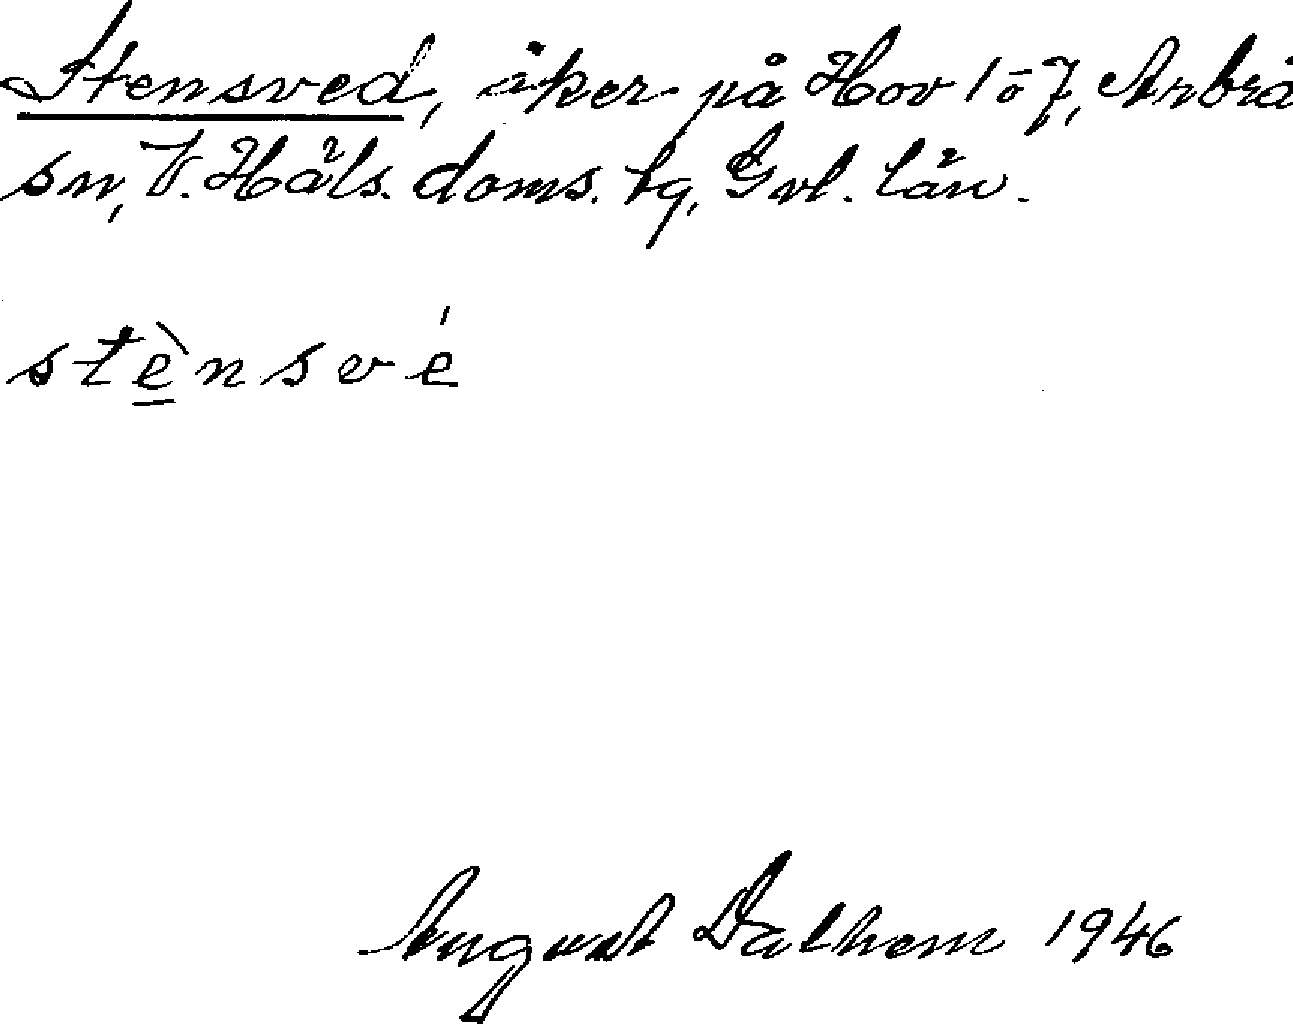 Stensved, åker på Hov 1 o 7, Arbrå
sn, V. Häls. doms. hg, Gvl. län.
stènsvé
August Dalhem 1946